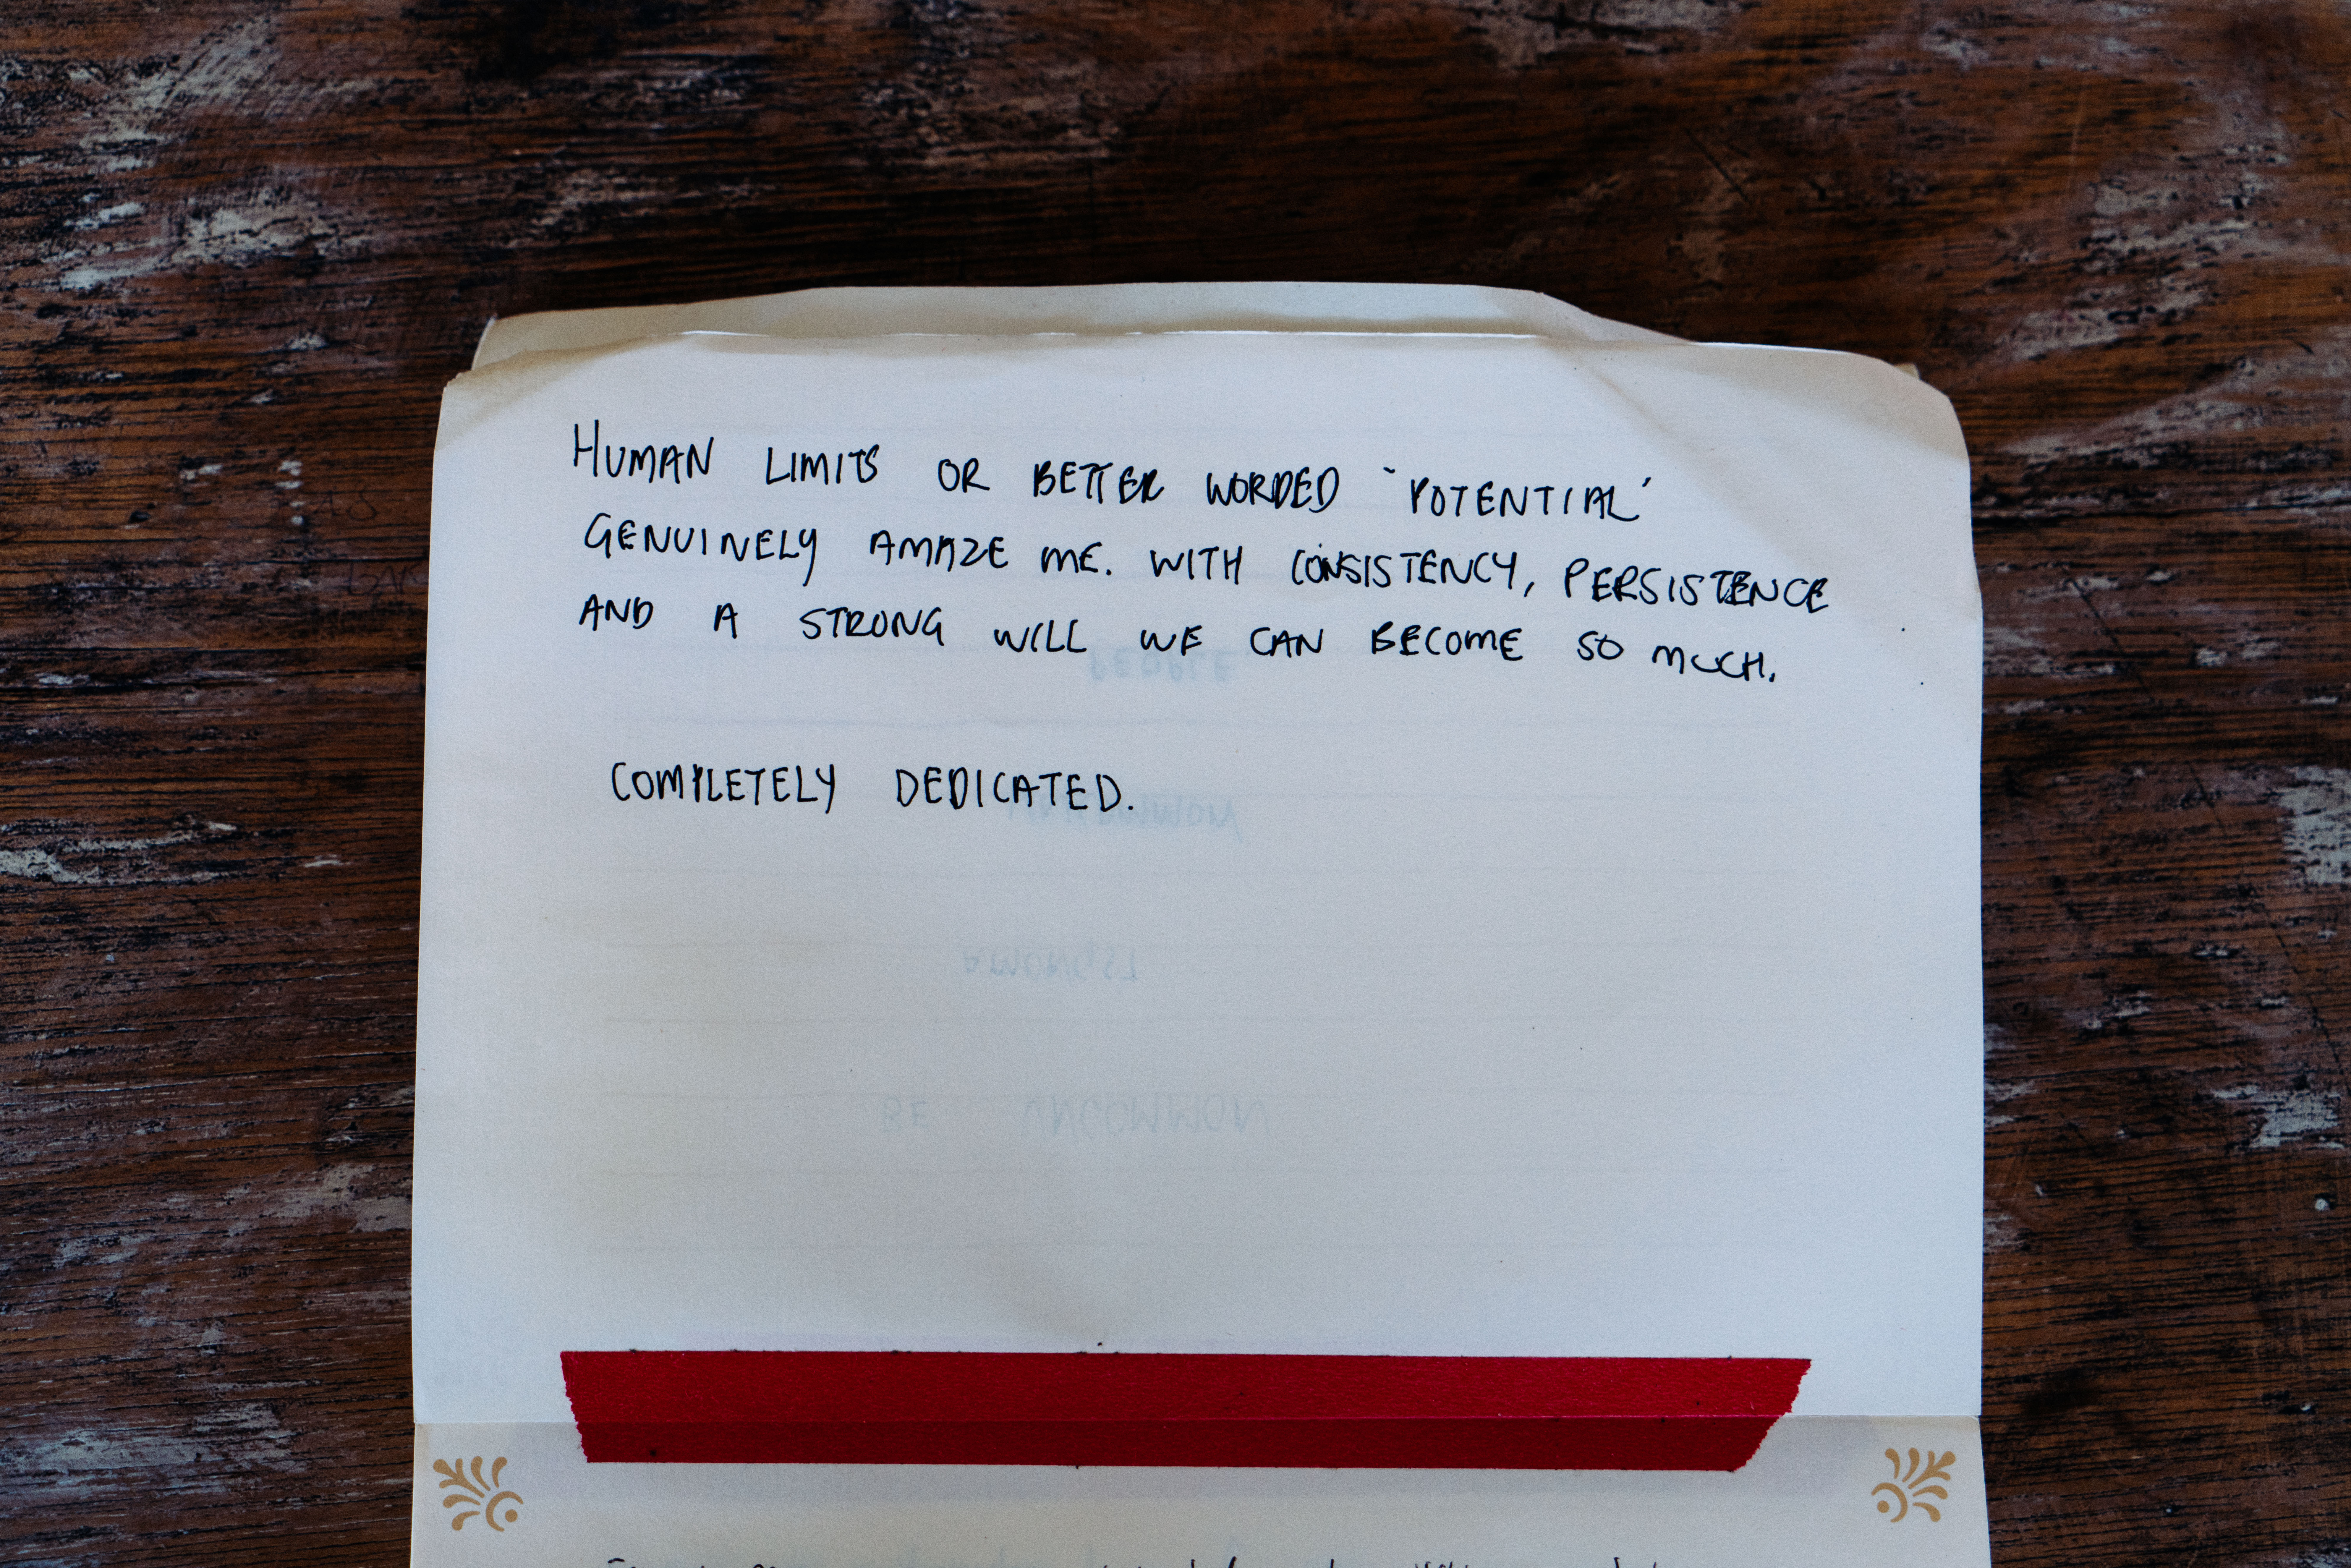 HUMAN LIMITS OR BETTER WORDED `POTENTIAL'
GENUINELY AMAZE ME. WITH CONSISTENCY, PERSISTENCE
AND A STRONG WILL WE CAN BECOME SO MUCH.
COMPLETELY DEDICATED.
PEOPLE
UNCOMMON
AMONGST
BE UNCOMMON